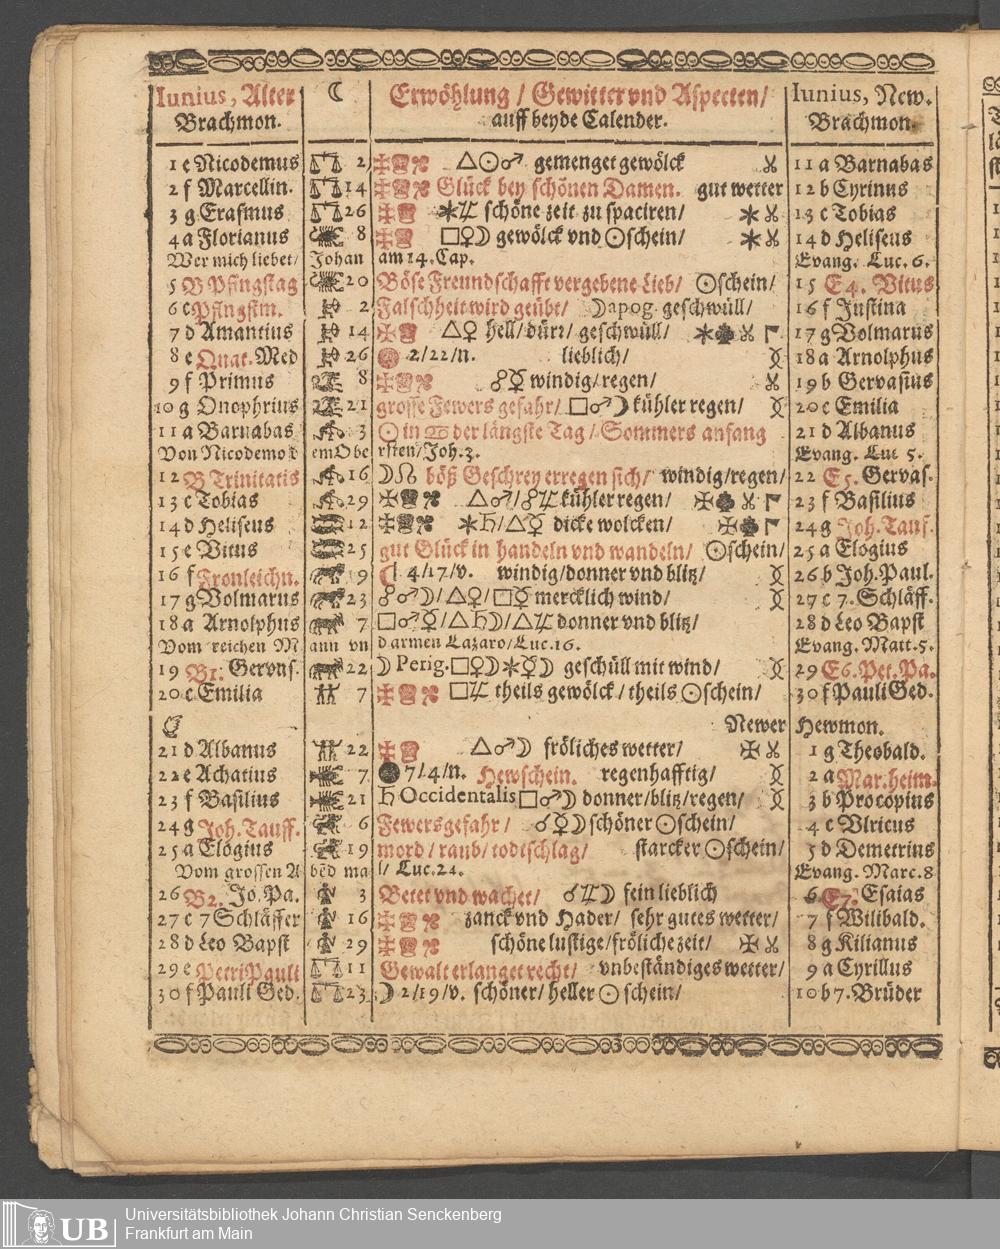 Iunius, Alter ☾ Erwöhlung / Gewitter vnd Aspecten / Iunius, New.
Brachmon. auff beyde Calender. Brachmon.
1 e Nicodemus ♎ 2 △☉♂ gemenget gewölck 11 a Barnabas
2 f Marcellin. ♎ 14 Glück bey schönen Damen. gut wetter 12 b Cyrinus
3 g Erasmus ♎ 26 ✶♃ schöne zeit zu spaciren / ✶ 13 c Tobias
4 a Florianus ♏ 8 □♀☽ gewölck vnd ☉schein / ✶ 14 d Heliseus
Wer mich liebet / Johan am 14. Cap. Evang. Luc. 6.
5 B Pfingstag ♏ 20 Böse Freundschafft vergebene Lieb / ☉schein / 15 E4. Vitus
6 c Pfingstm. ♐ 2 Falschheit wird geübt / ☽apog. geschwüll / 16 f Justina
7 d Amantius ♐ 14 △♀ hell / dürr / geschwüll / ✶ 17 g Volmarus
8 e Quat. Med ♐ 26 2 / 22 / n. lieblich / 18 a Arnolphus
9 f Primus ♑ 8 ☍☿ windig / regen / 19 b Gervasius
10 g Onophrius ♑ 21 grosse Fewers gefahr / □♂☽ kühler regen / 20 c Emilia
11 a Barnabas ♒ 3 ☉ in ♋ der längste Tag / Sommers anfang 21 d Albanus
Von Nicodemo dem Obersten / Joh. 3. Evang. Luc 5.
12 B Trinitatis ♒ 16 ☽☊ böß Geschrey erregen sich / windig / regen / 22 E5. Gervas.
13 c Tobias ♒ 29 △♂ / ☍♃ kühler regen / 23 f Basilius
14 d Heliseus ♓ 12 ✶♄ / △☿ dicke wolcken / 24 g Joh. Tauf.
15 e Vitus ♓ 25 gut Glück in handeln vnd wandeln / ☉schein / 25 a Elogius
16 f Fronleichn. ♈ 9 ☾ 4 / 17 / v. windig / donner vnd blitz / 26 b Joh. Paul.
17 g Volmarus ♈ 23 ☍♂☽ / △♀ / □☿ mercklich wind / 27 c 7. Schläff.
18 a Arnolphus ♉ 7 □♂☿ / △♄☽ / △♃ donner vnd blitz / 28 d Leo Bapst
Vom reichen Mann vnd armen Lazaro / Luc. 16. Evang. Matt. 5.
19 B1. Gervas. ♉ 22 ☽ Perig. □♀☽✶☿☽ geschüll mit wind / 29 E6. Pet. Pa.
20 c Emilia ♊ 7 □♃ theils gewölck / theils ☉schein / 30 f Pauli Ged.
Newer Hewmon.
21 d Albanus ♊ 22 △♂☽ fröliches wetter / 1 g Theobald.
22 e Achatius ♋ 7 7 / 4 / n. Hewschein. regenhafftig / 2 a Mar. heim.
23 f Basilius ♋ 21 ♄ Occidentalis □♂☽ donner / blitz / regen / 3 b Procopius
24 g Joh. Tauff. ♌ 6 Fewersgefahr / ☌☿☽ schöner ☉schein / 4 c Vlricus
25 a Elogius ♌ 19 mord / raub / todtschlag / starcker ☉schein / 5 d Demetrius
Vom grossen Abēd mal / Luc. 24. Evang. Marc. 8
26 B2. Jo. Pa. ♍ 3 Betet vnd wachet / ☌♃☽ fein lieblich 6 E7. Esaias
27 c 7 Schläffer ♍ 16 zanck vnd Hader / sehr gutes wetter / 7 f Wilibald.
28 d Leo Bapst ♍ 29 schöne lustige / fröliche zeit / 8 g Kilianus
29 e Petri Pauli ♎ 11 Gewalt erlanget recht / vnbeständiges wetter / 9 a Cyrillus
30 f Pauli Ged. ♎ 23 ☽ 2 / 19 / v. schöner / heller ☉ schein / 10 b 7. Brüder
UB Universitätsbibliothek Johann Christian Senckenberg
Frankfurt am Main